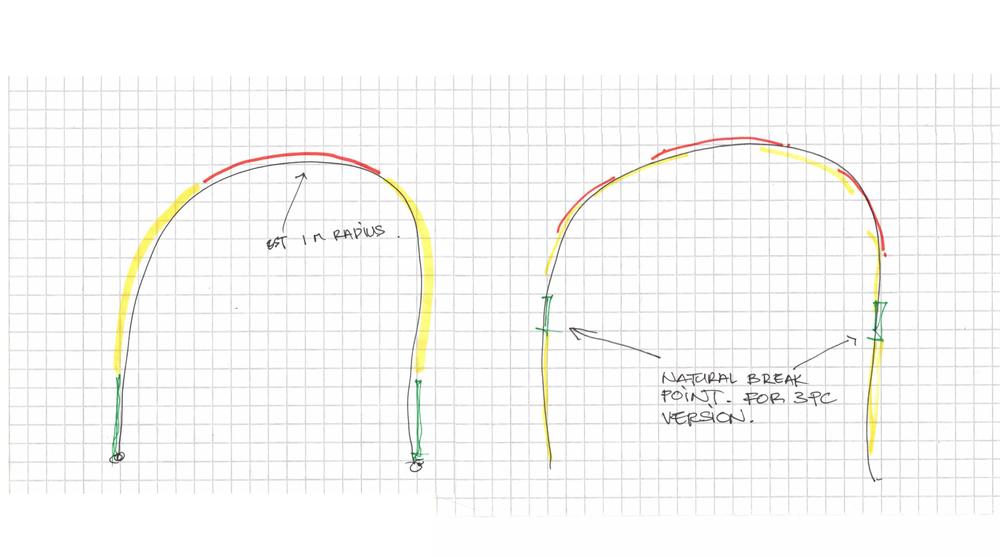 EST 1 M RADIUS.
NATURAL BREAK
POINT. FOR 3PC
VERSION.